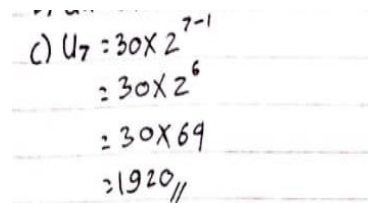 c) U₇ = 30 × 2⁷⁻¹
= 30 × 2⁶
= 30 × 64
= 1920 //